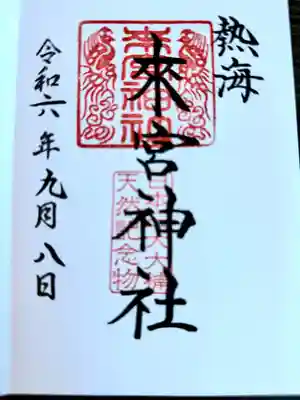 熱海
來宮神社
令和六年九月八日
來宮神社
天然記念物